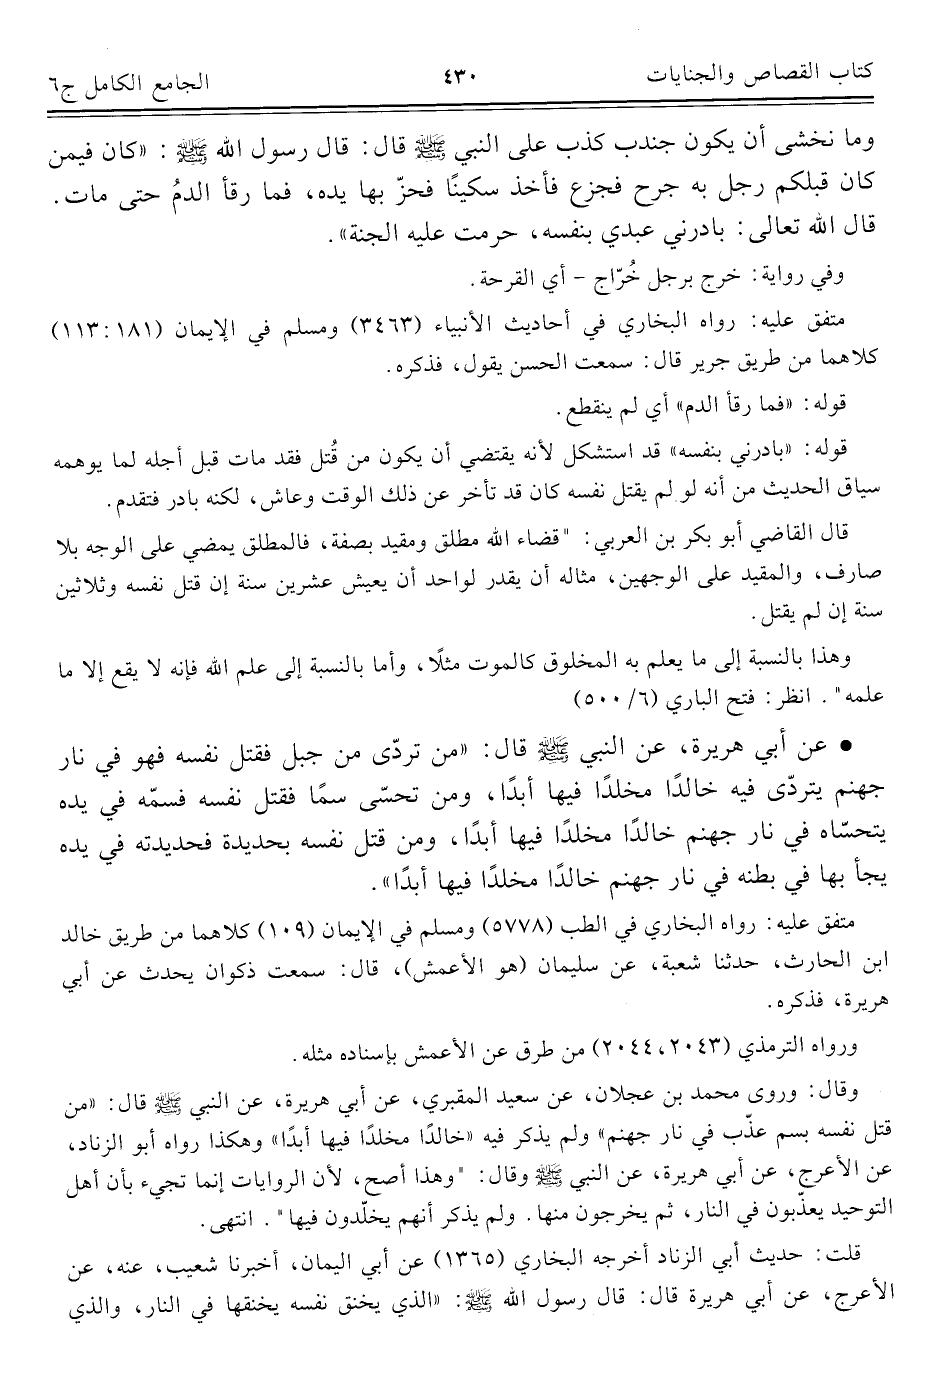 كتاب القصاص والجنايات ٤٣٠ الجامع الكامل ج٦
وما نخشى أن يكون جندب كذب على النبي ﷺ قال: قال رسول الله ﷺ : «كان فيمن
كان قبلكم رجل به جرح فجزع فأخذ سكينًا فحزّ بها يده، فما رقأ الدمُ حتى مات.
قال الله تعالى: بادرني عبدي بنفسه، حرمت عليه الجنة».
وفي رواية: خرج برجل خُرّاج - أي القرحة.
متفق عليه: رواه البخاري في أحاديث الأنبياء (٣٤٦٣) ومسلم في الإيمان (١١٣:١٨١)
كلاهما من طريق جرير قال: سمعت الحسن يقول، فذكره.
قوله: «فما رقأ الدم» أي لم ينقطع.
قوله: «بادرني بنفسه» قد استشكل لأنه يقتضي أن يكون من قُتل فقد مات قبل أجله لما يوهمه
سياق الحديث من أنه لو لم يقتل نفسه كان قد تأخر عن ذلك الوقت وعاش، لكنه بادر فتقدم.
قال القاضي أبو بكر بن العربي: "قضاء الله مطلق ومقيد بصفة، فالمطلق يمضي على الوجه بلا
صارف، والمقيد على الوجهين، مثاله أن يقدر لواحد أن يعيش عشرين سنة إن قتل نفسه وثلاثين
سنة إن لم يقتل.
وهذا بالنسبة إلى ما يعلم به المخلوق كالموت مثلًا، وأما بالنسبة إلى علم الله فإنه لا يقع إلا ما
علمه". انظر: فتح الباري (٦/ ٥٠٠)
● عن أبي هريرة، عن النبي ﷺ قال: «من تردّى من جبل فقتل نفسه فهو في نار
جهنم يتردّى فيه خالدًا مخلدًا فيها أبدًا، ومن تحسّى سمًا فقتل نفسه فسمّه في يده
يتحسّاه في نار جهنم خالدًا مخلدًا فيها أبدًا، ومن قتل نفسه بحديدة فحديدته في يده
يجأ بها في بطنه في نار جهنم خالدًا مخلدًا فيها أبدًا».
متفق عليه: رواه البخاري في الطب (٥٧٧٨) ومسلم في الإيمان (١٠٩) كلاهما من طريق خالد
ابن الحارث، حدثنا شعبة، عن سليمان (هو الأعمش)، قال: سمعت ذكوان يحدث عن أبي
هريرة، فذكره.
ورواه الترمذي (٢٠٤٣، ٢٠٤٤) من طرق عن الأعمش بإسناده مثله.
وقال: وروى محمد بن عجلان، عن سعيد المقبري، عن أبي هريرة، عن النبي ﷺ قال: «من
قتل نفسه بسم عذّب في نار جهنم» ولم يذكر فيه «خالدًا مخلدًا فيها أبدًا» وهكذا رواه أبو الزناد،
عن الأعرج، عن أبي هريرة، عن النبي ﷺ وقال: "وهذا أصح، لأن الروايات إنما تجيء بأن أهل
التوحيد يعذّبون في النار، ثم يخرجون منها. ولم يذكر أنهم يخلّدون فيها". انتهى.
قلت: حديث أبي الزناد أخرجه البخاري (١٣٦٥) عن أبي اليمان، أخبرنا شعيب، عنه، عن
الأعرج، عن أبي هريرة قال: قال رسول الله ﷺ: «الذي يخنق نفسه يخنقها في النار، والذي